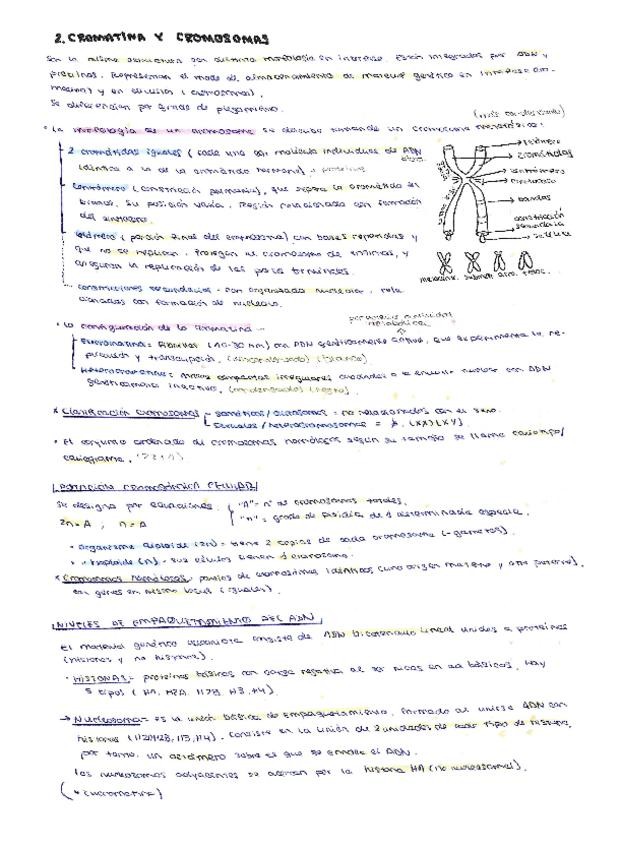 2. CROMATINA Y CROMOSOMAS
Son la misma estructura con distinta morfología en interfase. Están integradas por ADN y
proteínas. Representan el modo de almacenamiento de material genético en interfase (cro-
matina) y en división (cromosoma).
Se diferencian por grado de plegamiento.
(más condensado)
• La morfología de un cromosoma se describe tomando un cromosoma metafásico:
- 2 cromátidas iguales (cada una con molécula individual de ADN
idéntica a la de la cromátida hermana) + proteínas
centrómero (constricción primaria), que separa la cromátida en
brazos. Su posición varía. Región relacionada con formación
del
telómero (porción final del cromosoma) con bases repetidas y
que no se replican. Protegen al cromosoma de y
aseguran la replicación de las partes terminales.
constricciones secundarias - organizador nucleolar, rela-
cionadas con formación de nucleolo.
telómero
cromátidas
centrómero
cinetocoro
bandas
constricción
secundaria
satélite
metacéntr. submet. acro. teloc.
• La configuración de la cromatina
- Eucromatina = Fibrillas (10-30 nm) con ADN genéticamente activo, que experimenta la re-
plicación y transcripción. (descondensado) (blanco)
- Heterocromatina = Masas compactas irregulares asociadas a la envuelta nuclear con ADN
genéticamente inactivo. (condensado) (negro)
* Clasificación cromosomas - somáticos/autosomas = no relacionados con el sexo.
- sexuales/heterocromosomas = (XX) (XY)
• El conjunto ordenado de cromosomas homólogos según su tamaño se llama cariotipo/
cariograma.
DOTACIÓN CROMOSÓMICA CELULAR
Se designa por ecuaciones "A" = nº de cromosomas totales.
2n = A , n = A "n" = grado de ploidía de 1 determinada especie.
• organismo diploide (2n) = tiene 2 copias de cada cromosoma (- gametos).
• " haploide (n) - sus células tienen 1 cromosoma.
* Cromosomas homólogos: parejas de cromosomas idénticos (uno origen materno y otro paterno),
con genes en mismo locus (iguales).
NIVELES DE EMPAQUETAMIENTO DEL ADN
El material genético eucariota consiste de ADN bicatenario lineal unidos a proteínas
(histonas y no histonas).
• HISTONAS - proteínas básicas con carga negativa al ser ricas en aa básicos. Hay
5 tipos (H1, H2A, H2B, H3, H4).
→ Nucleosoma = es la unidad básica de empaquetamiento, formado al unirse ADN con
histonas (H2A, H2B, H3, H4). Consiste en la unión de 2 unidades de cada tipo de histona,
por tanto, un octámero sobre el que se enrolla el ADN.
Los nucleosomas adyacentes se acercan por la histona H1 (no nucleosomal).
(+ cromatina)